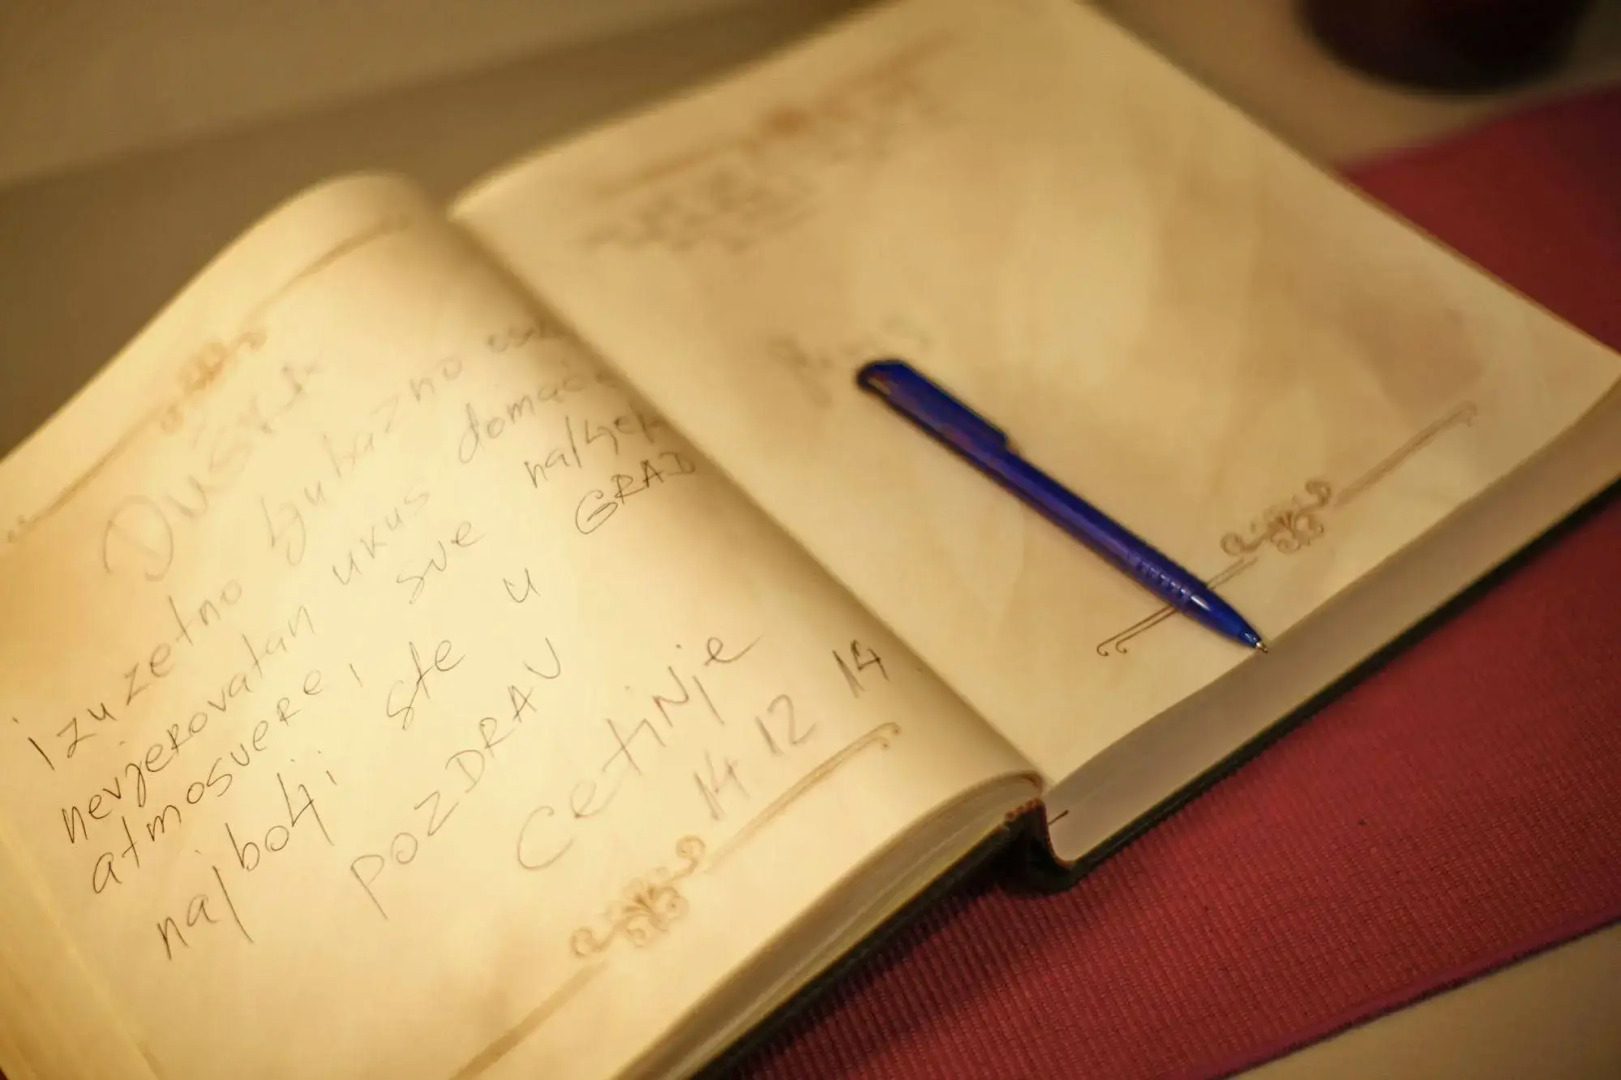 DUŠKA
izuzetno ljubazno
nevjerovatan ukus domać
atmosvere, sve najljep
najbolji ste u GRAD
POZDRAV
Cetinje
14 12 14